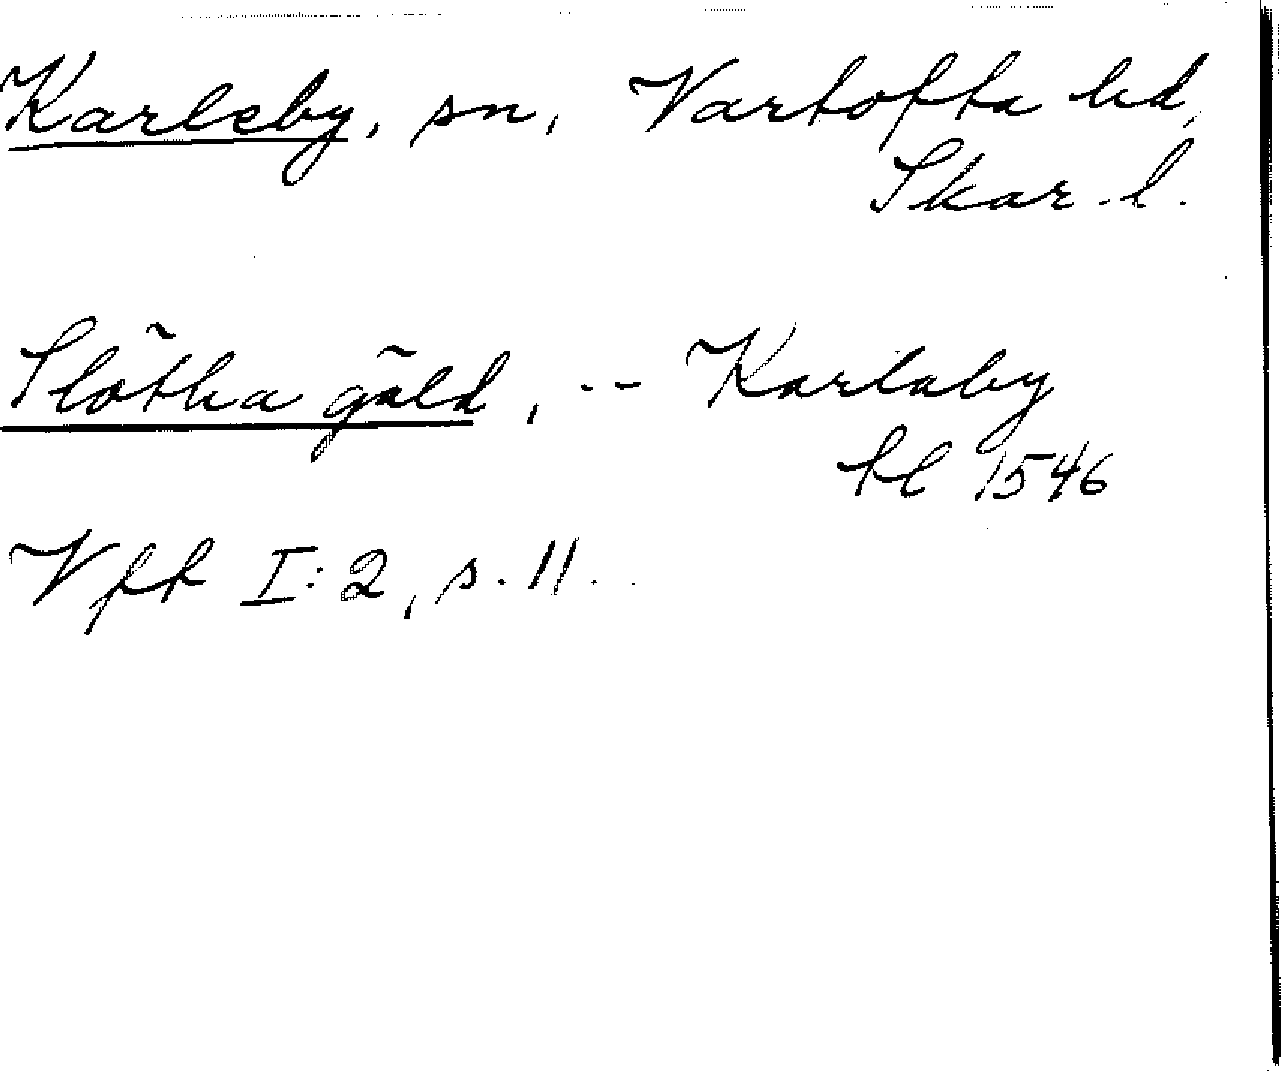 Karleby, sn, Vartofta hd,
Skar. l.
Slötha gäld, -- Karlaby
kl 1546
Vff I:2, s. 11.